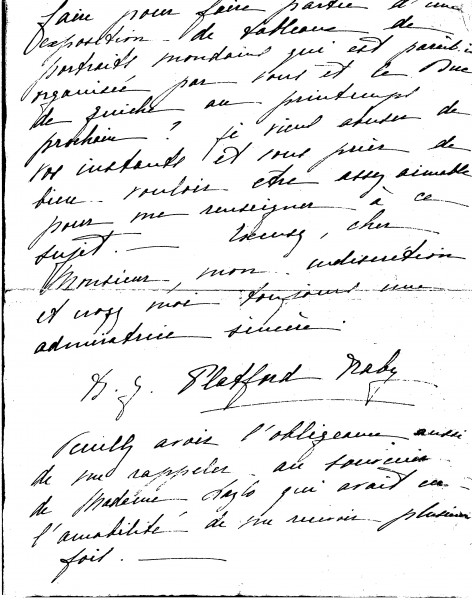 faire pour faire partie d'une
exposition de tableaux de
portraits mondains qui est paraît-il
organisée par vous et le Duc
de Guiche au printemps
prochain ? je viens abuser de
vos instants et vous prier de
bien vouloir être assez aimable
pour me renseigner à ce
sujet. — Excusez, cher
Monsieur, mon indiscrétion
et croyez moi toujours une
admiratrice sincère.
Platford
Veuillez avoir l'obligeance aussi
de me rappeler au souvenir
de Madame Laszlo qui avait eu
l'amabilité de me recevoir plusieurs
fois. —